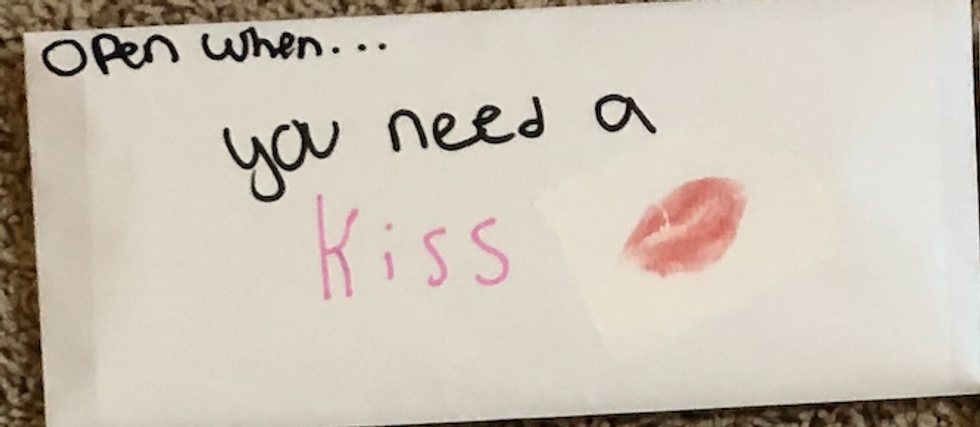 Open when...
you need a
Kiss